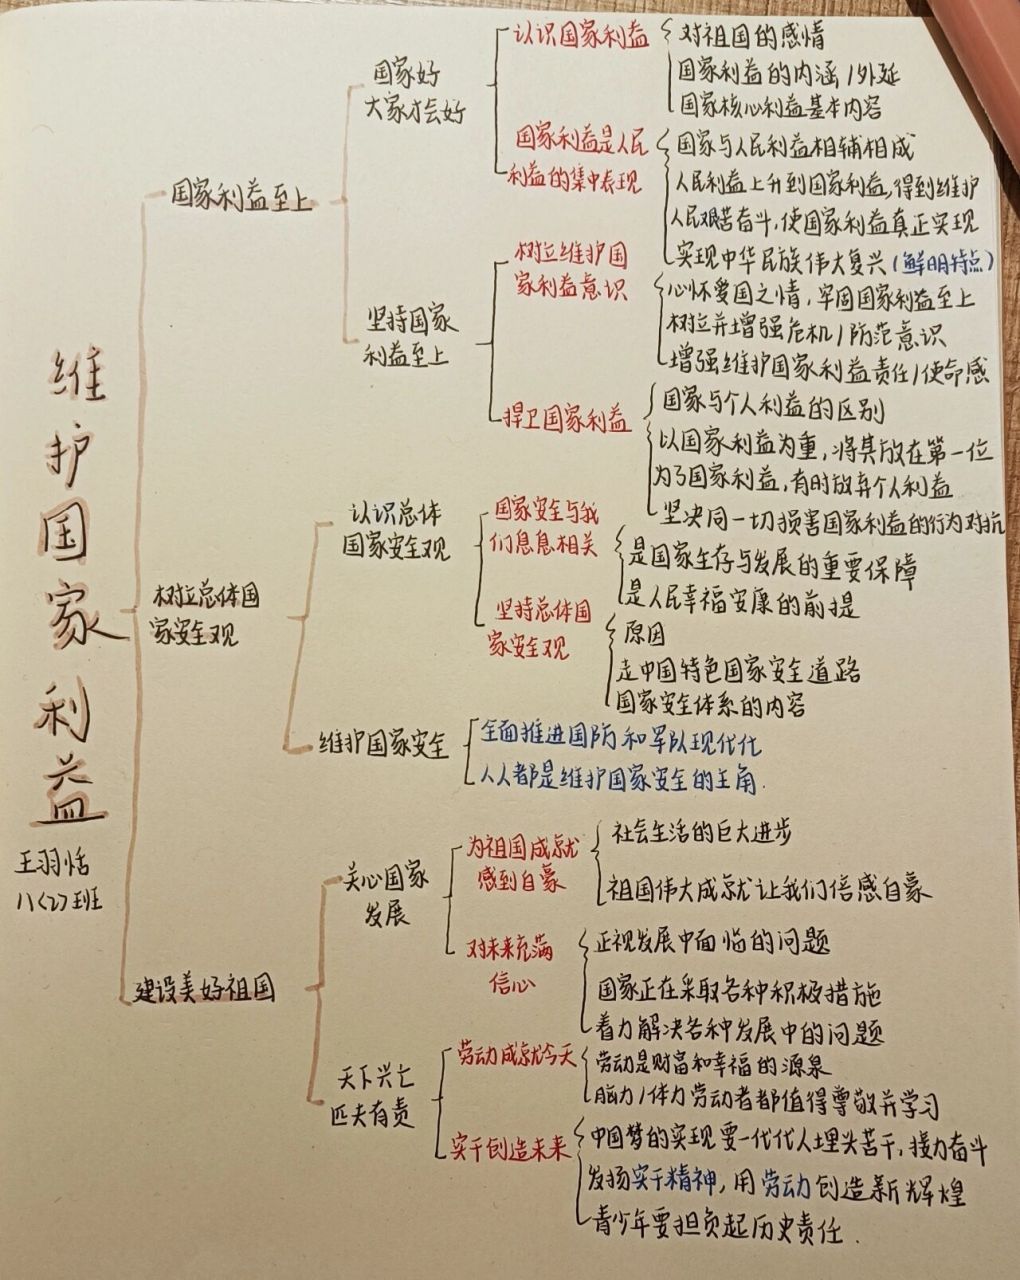 维护国家利益
王羽恬
八〈2〉班
国家利益至上
国家好
大家才会好
认识国家利益
对祖国的感情
国家利益的内涵/外延
国家核心利益基本内容
国家利益是人民
利益的集中表现
国家与人民利益相辅相成
人民利益上升到国家利益,得到维护
人民艰苦奋斗,使国家利益真正实现
实现中华民族伟大复兴(鲜明特点)
坚持国家
利益至上
树立维护国
家利益意识
心怀爱国之情,牢固国家利益至上
树立并增强危机/防范意识
增强维护国家利益责任/使命感
捍卫国家利益
国家与个人利益的区别
以国家利益为重,将其放在第一位
为了国家利益,有时放弃个人利益
坚决同一切损害国家利益的行为对抗
树立总体国
家安全观
认识总体
国家安全观
国家安全与我
们息息相关
是国家生存与发展的重要保障
是人民幸福安康的前提
坚持总体国
家安全观
原因
走中国特色国家安全道路
国家安全体系的内容
维护国家安全
全面推进国防和军队现代化
人人都是维护国家安全的主角.
建设美好祖国
关心国家
发展
为祖国成就
感到自豪
社会生活的巨大进步
祖国伟大成就让我们倍感自豪
对未来充满
信心
正视发展中面临的问题
国家正在采取各种积极措施
着力解决各种发展中的问题
天下兴亡
匹夫有责
劳动成就今天
劳动是财富和幸福的源泉
脑力/体力劳动者都值得尊敬并学习
实干创造未来
中国梦的实现要一代代人埋头苦干,接力奋斗
发扬实干精神,用劳动创造新辉煌
青少年要担负起历史责任.